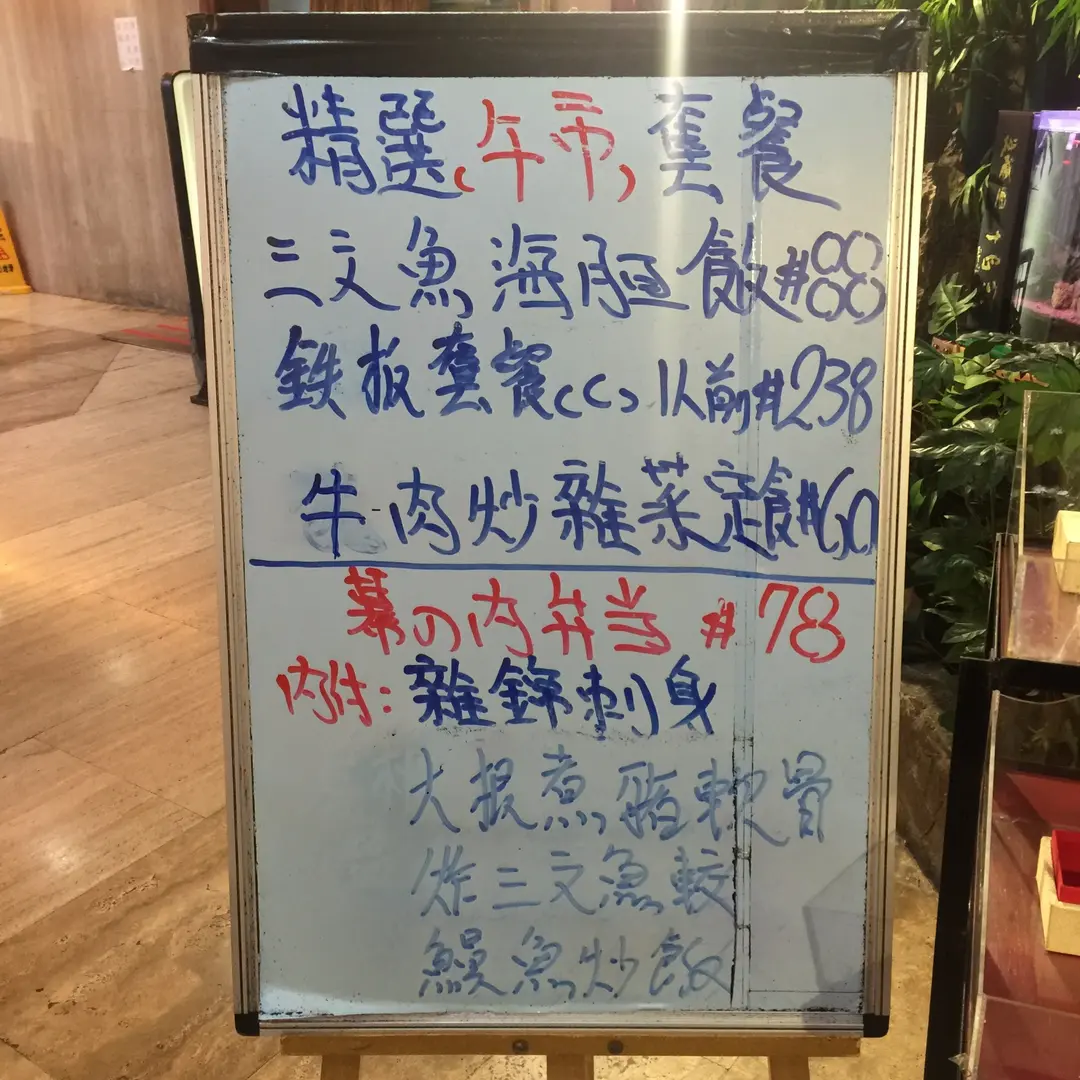 精選(午市)套餐
三文魚海胆飯#88
鉄板套餐(C)以前#238
牛肉炒雜菜定食#60
幕の内弁当 #78
内附:雜錦刺身
大根煮猪軟骨
炸三文魚較
鰻魚炒飯